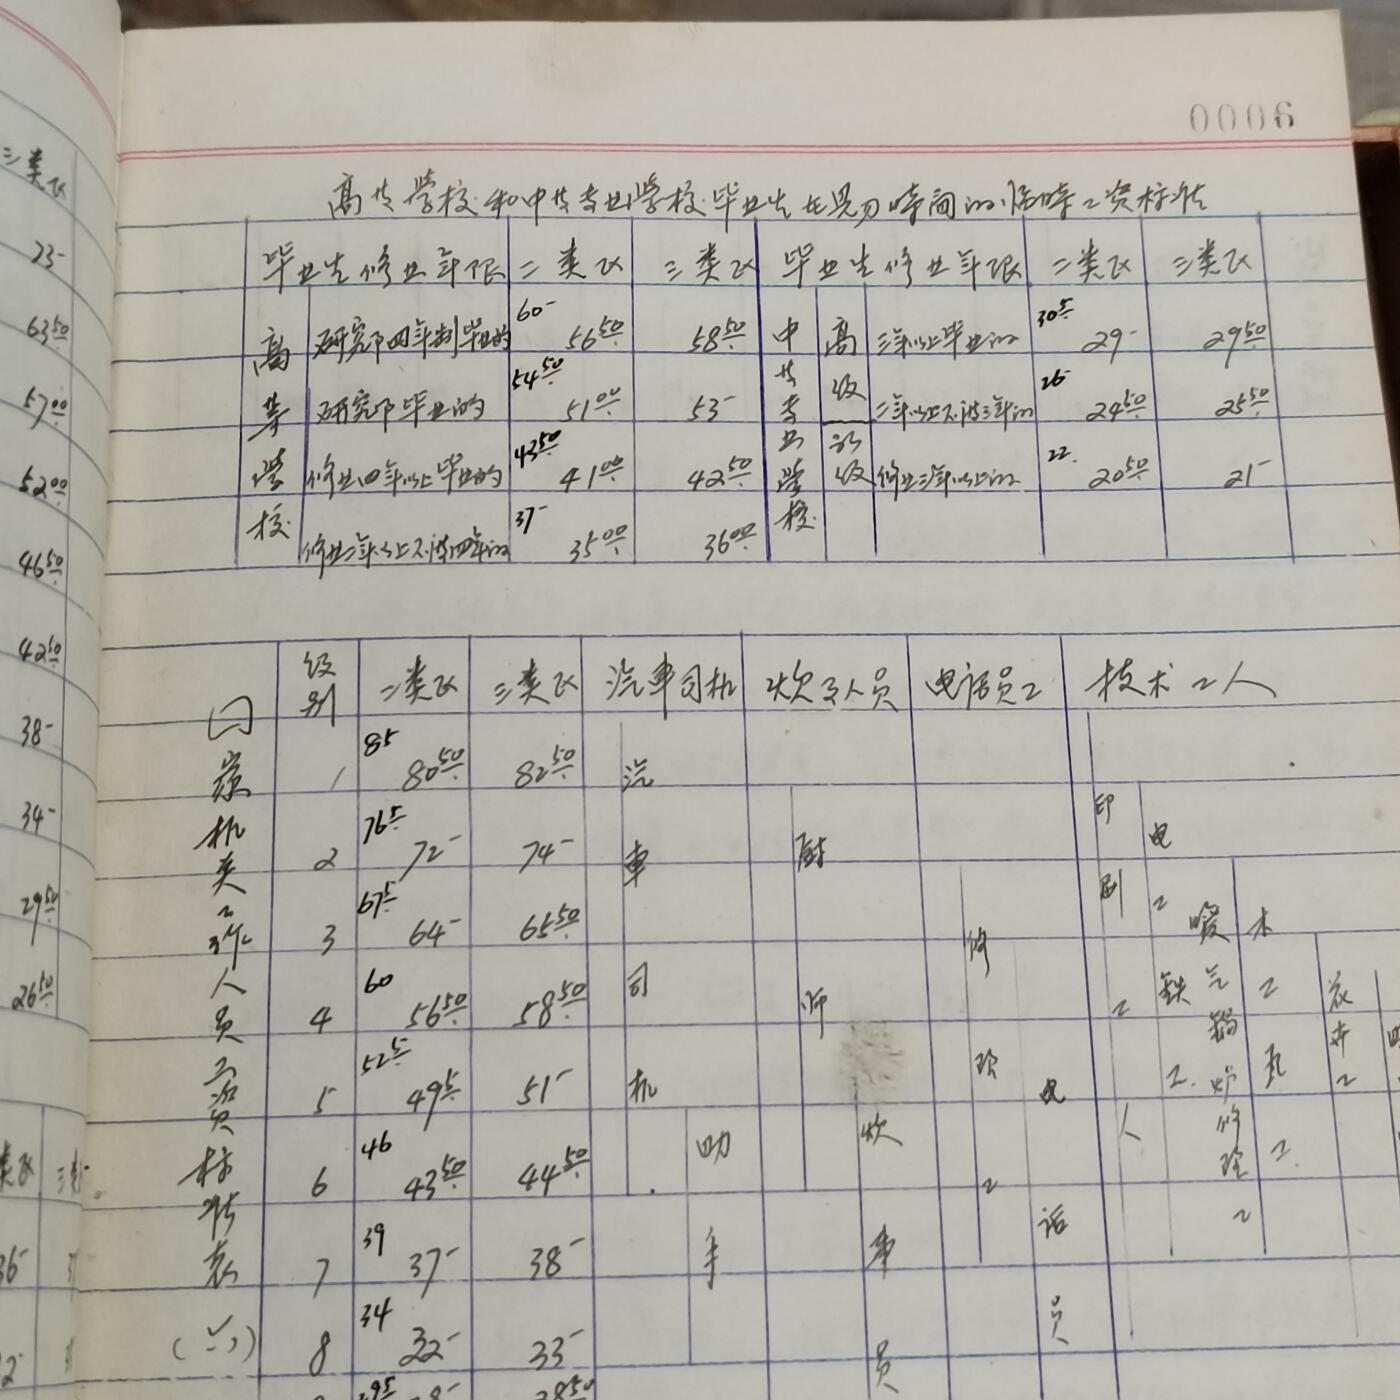 0006
高等学校和中等专业学校毕业生在见习時间的临時工资标准
毕业生修业年限 二类区 三类区 毕业生修业年限 二类区 三类区
高等学校 中等专业学校 高级 初级
研究部四年制毕业的 60- 56.50 58.50 三年以上毕业的 30.5 29- 29.50
研究部毕业的 54.50 51.00 53- 二年以上不满三年的 26- 24.50 25.50
修业四年以上毕业的 43.50 41.00 42.50 修业三年以上的 22. 20.50 21-
修业二年以上不满四年的 37- 35.00 36.00
国家机关工作人员工资标准表
(二)
级别 二类区 三类区 汽車司机 炊事人员 电话员工 技术工人
1 85 80.50 82.50
2 76.5 72- 74-
3 67.5 64- 65.50
4 60 56.50 58.50
5 52.5 49.5 51-
6 46 43.50 44.50
7 39 37- 38-
8 34 32- 33-
29.5 28- 28.50
汽車司机
助手
厨师
炊事员
修理工
电话员
印刷工人
电工
铁工.
暖气锅炉修理工
木工
瓦工.
三类区
23-
63.50
57.00
52.00
46.50
42.50
38-
34-
29.50
26.50
类区 三类
36-